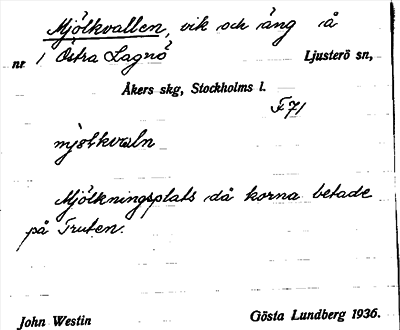 Mjölkvallen, vik och äng å
nr 1 Östra Lagnö Ljusterö sn,
Åkers skg, Stockholms l.
F71
mjölkvaln
Mjölkningsplats då korna betade
på Truten.
John Westin Gösta Lundberg 1936.